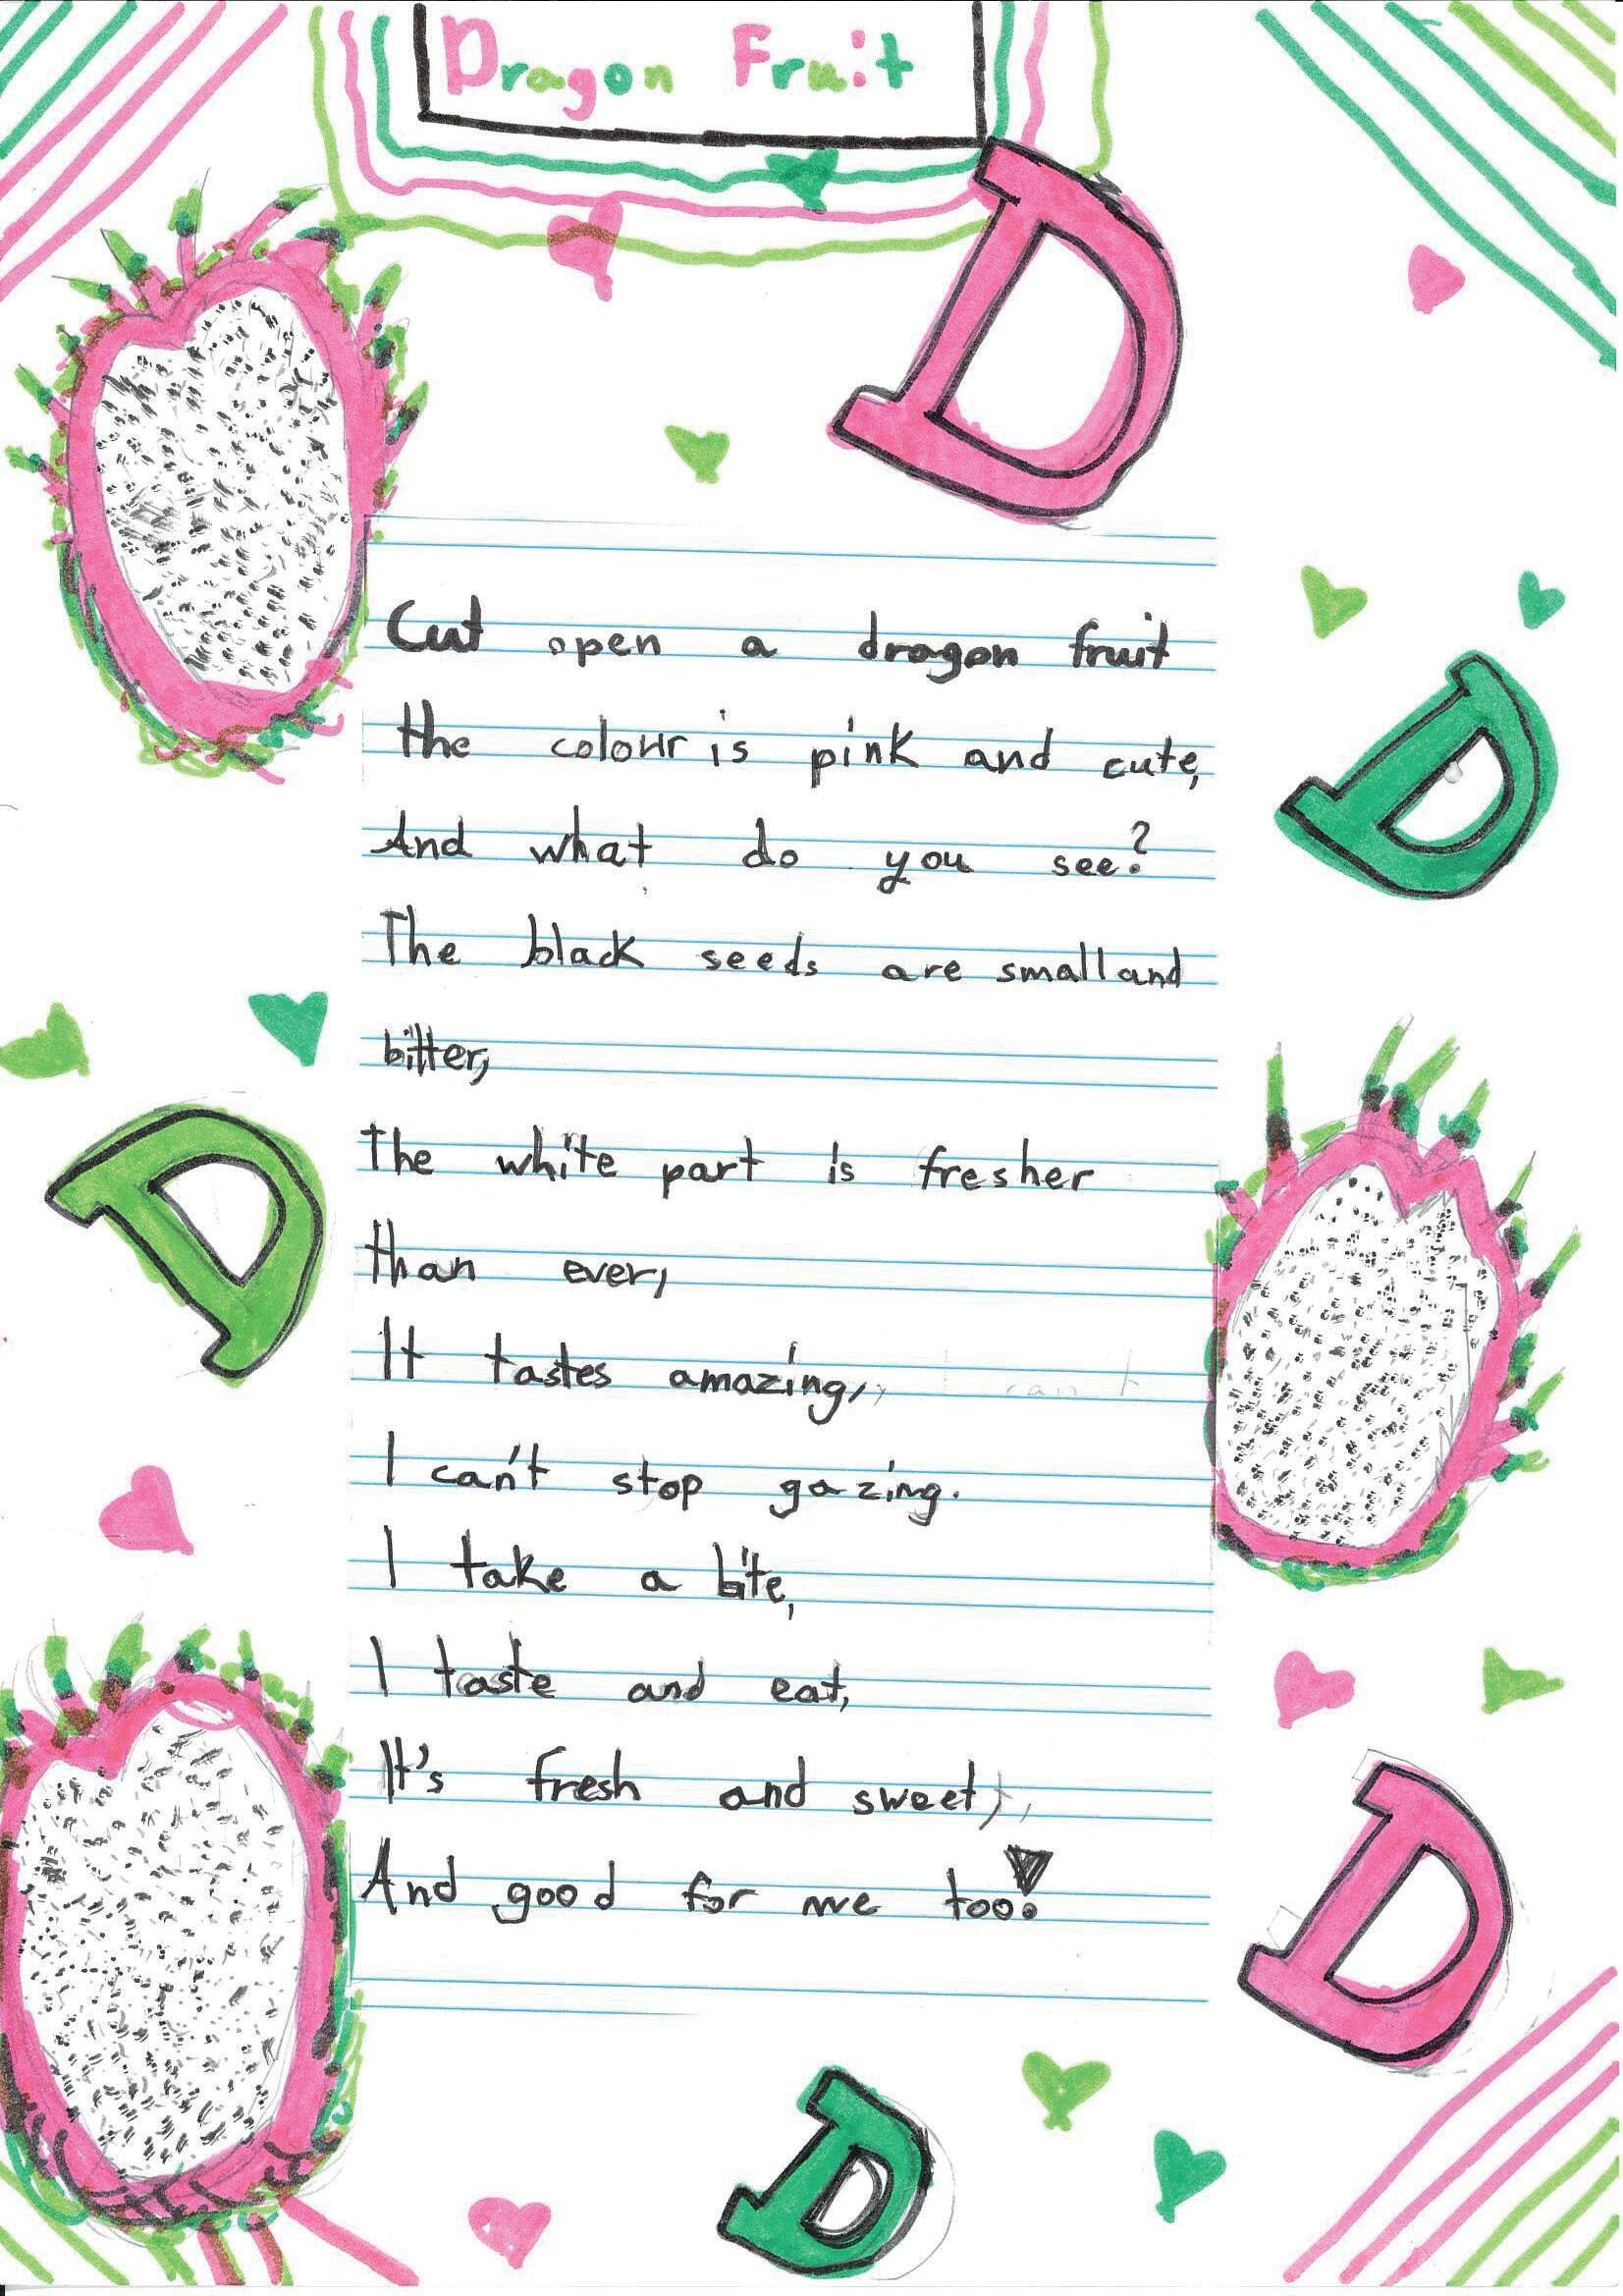 Dragon Fruit
D
Cut open a dragon fruit
the colour is pink and cute,
D
And what do you see?
The black seeds are small and
bitter,
D
The white part is fresher
than ever,
It tastes amazing,
I can't stop gazing.
I take a bite,
I taste and eat,
It's fresh and sweet,
And good for me too!
D
D